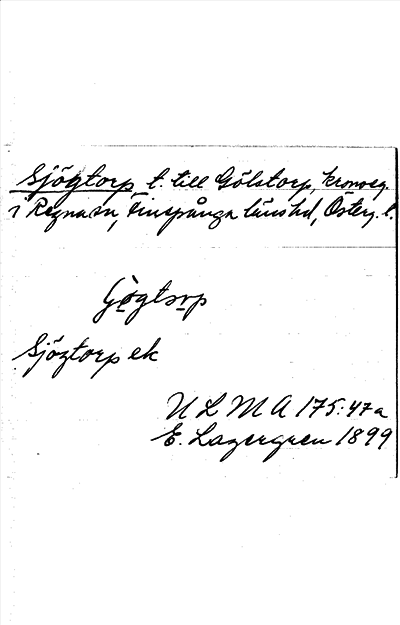 Sjögtorp, t. till Gölstorp, kronoeg.
i Regna sn, Finspånga länshd, Österg. l.
Gògtorp
Sjögtorp ek
ULMA 175:47a
E. Lagergren 1899